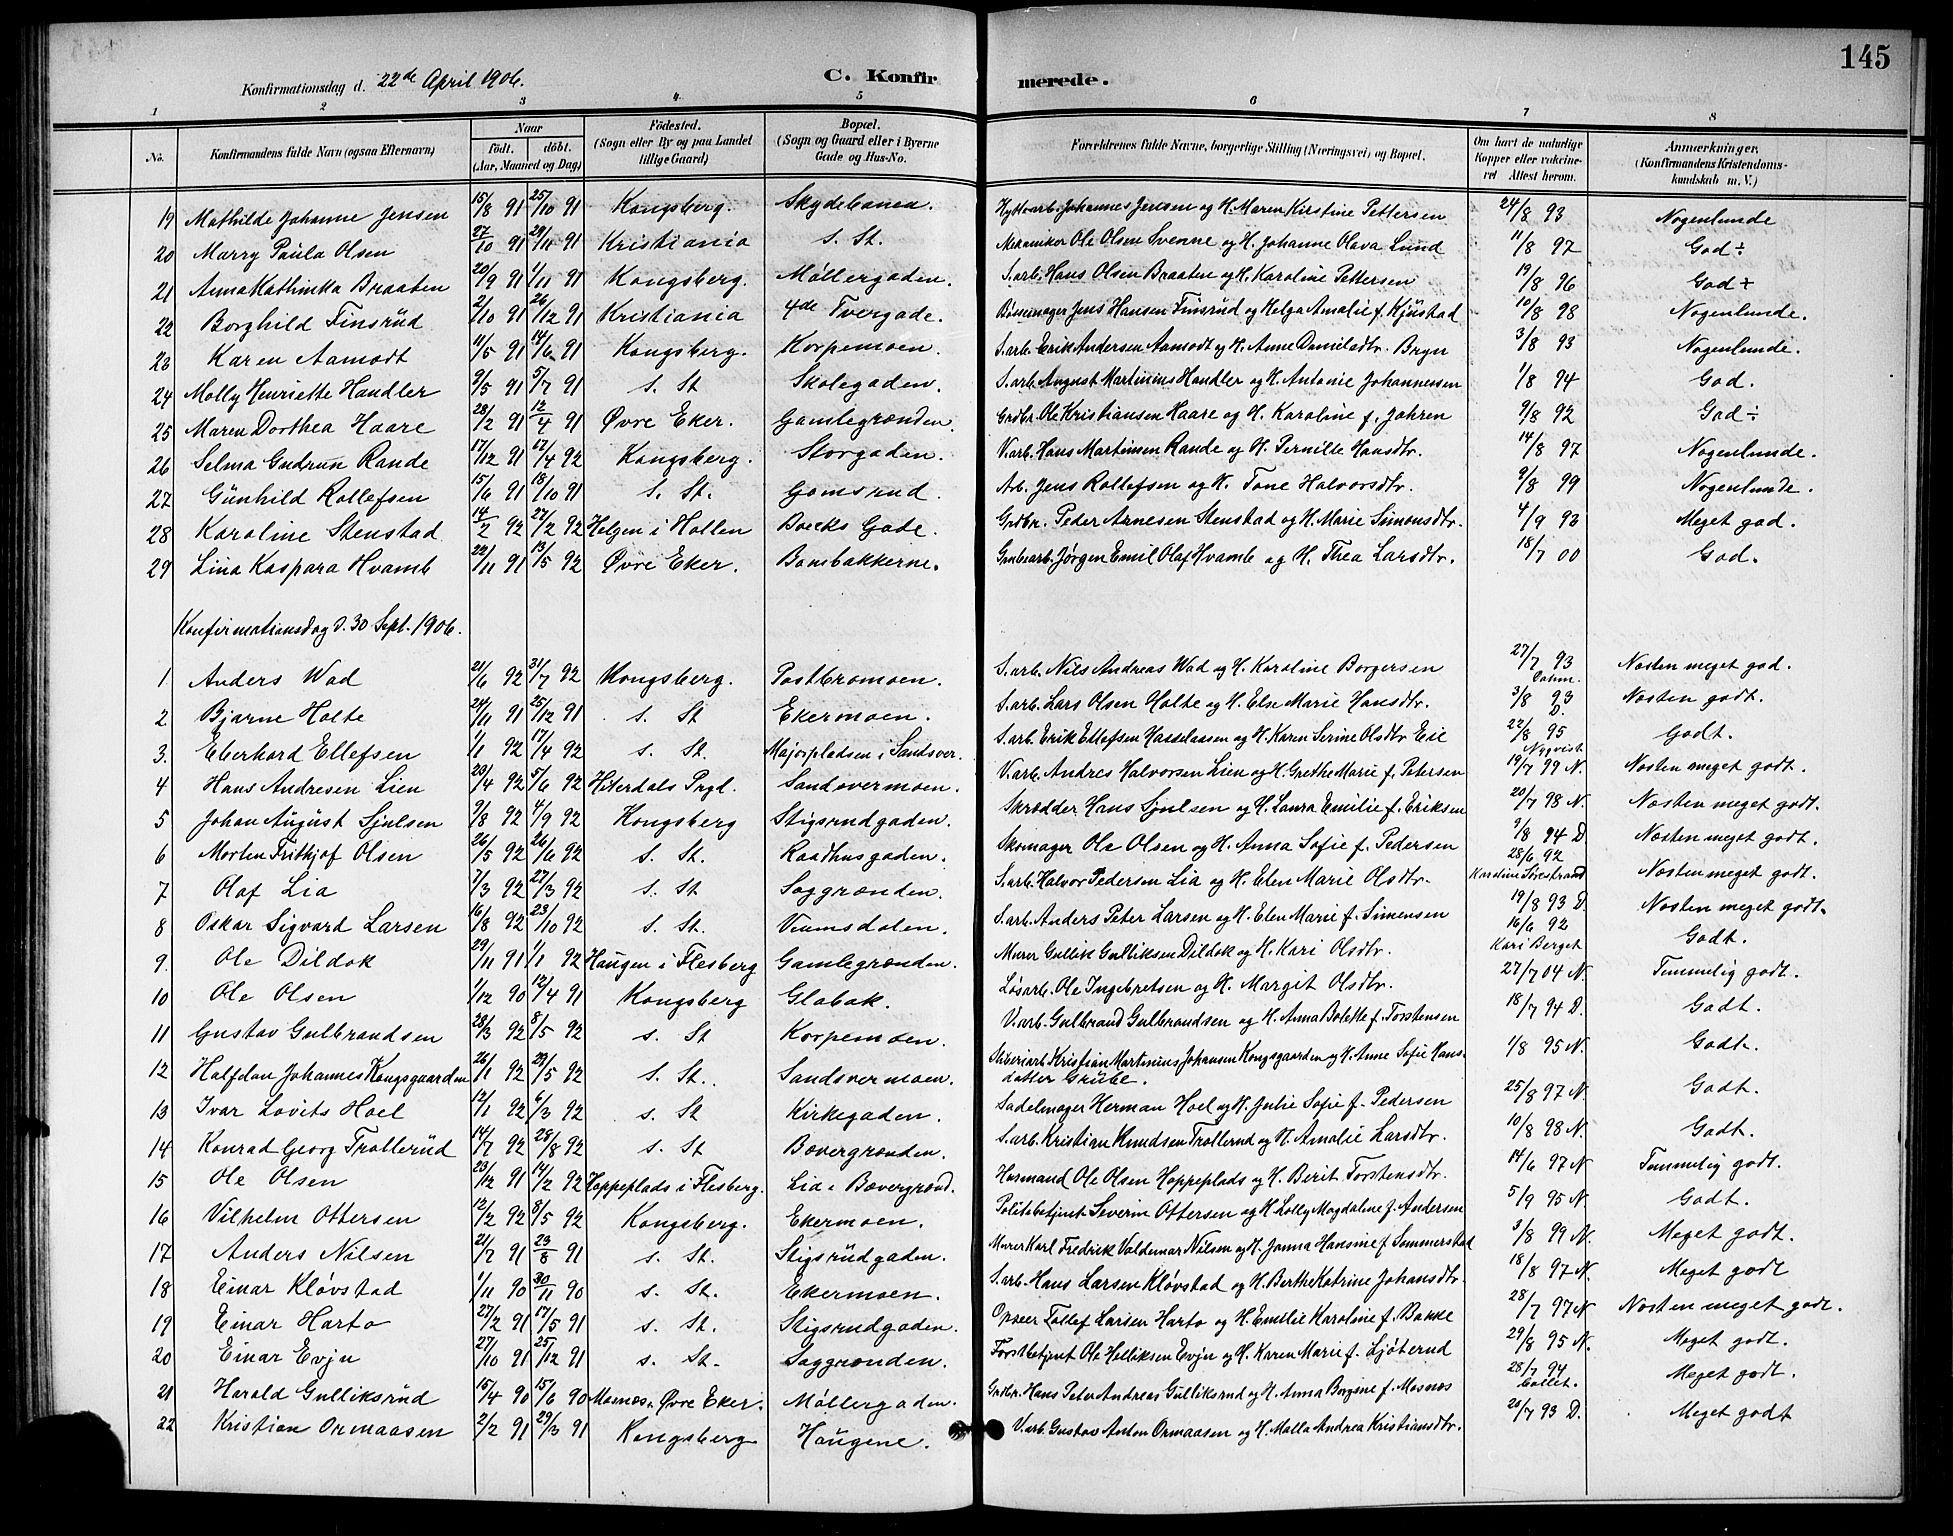 145
Konfirmationsdag d. 22de April 1906. C. Konfirmerede.
1 2 3 4 5 6 7 8
No. Konfirmandens fulde Navn (ogsaa Efternavn) Naar födt. döbt. (Aar, Maaned og Dag) Födested. (Sogn eller By og paa Landet tillige Gaard) Bopæl. (Sogn og Gaard eller i Byerne Gade og Hus-No. Forældrenes fulde Navne, borgerlige Stilling (Næringsvei) og Bopæl. Om havt de naturlige Kopper eller vakcineret Attest herom. Anmærkninger. (Konfirmandens Kristendomskundskab m. V.)
19 Mathilde Johanne Jensen 15/8 91 25/10 91 Kongsberg. Skydebanen. Hyttearb. Johannes Jensen og H. Maren Kirstine Pettersen 24/8 93 Nogenlunde
20 Marry Paula Olsen 27/10 91 29/11 91 Kristiania s. St. Mekaniker Ole Olsen Svenne og H. Johanne Olava Lund 11/8 97 God ÷
21 Anna Kathinka Braaten 20/9 91 1/11 91 Kongsberg. Møllergaden. S. arb. Hans Olsen Braaten og H. Karoline Pettersen 19/8 96 God ÷
22 Borghild Finsrud 2/10 91 26/12 91 Kristiania 4de Tvergade. Bøssemager Jens Hansen Finsrud og Helga Amalie f. Kjustad 10/8 98 Nogenlunde.
23 Karen Aamodt 11/5 91 14/6 91 Kongsberg. Korpemoen. S. arb. Erik Andersen Aamodt og H. Anne Danielsdtr. Bryn 3/8 93 Nogenlunde.
24 Molly Henriette Handler 9/5 91 5/7 91 s. St Skolegaden. S. arb. August Martinius Handler og H. Antonie Johannesen 1/8 94 God.
25 Maren Dorthea Haare 28/2 91 12/4 91 Øvre Eker. Gamlegrønden. Grdbr. Ole Kristiansen Haare og H. Karoline f. Jahren 9/8 92 God ÷
26 Selma Gudrun Rande 17/12 91 17/4 92 Kongsberg. Storgaden. V. arb. Hans Martinsen Rande og H. Pernille Hansdtr. 14/8 97 Nogenlunde.
27 Gunhild Rollefsen 15/6 91 18/10 91 s. St. Gomsrud. Arb. Jens Rollefsen og H. Tone Halvorsdtr. 9/8 99 Nogenlunde.
28 Karoline Stenstad 14/2 92 27/2 92 Helgen i Hollen Boecks Gade. Grdbr. Peder Arnesen Stenstad og H. Marie Simonsdtr. 4/9 93 Meget god.
29 Lina Kaspara Hvamb 22/11 91 13/5 92 Øvre Eker. Bombakkerne. Grubearb. Jørgen Emil Olaf Hvamb og H. Thea Larsdtr. 18/7 00 God.
Konfirmationsdag d. 30 Sept. 1906.
1 Anders Wad 21/6 92 31/7 92 Kongsberg. Postbromoen. S. arb. Nils Andreas Wad og H. Karoline Borgersen 27/7 93 Næsten meget god.
2 Bjarne Holte 24/11 91 25/12 91 s. St Ekermoen. S. arb. Lars Olsen Holte og H. Else Marie Hansdtr. 3/8 93 D. Næsten godt.
3. Eberhard Ellefsen 1/1 92 17/4 92 s. St. Majorpladsen i Sandsver. S. arb. Erik Ellefsen Hasselaasen og H. Karen Serine Olsdtr Eie 22/8 95 Nyqvist Godt.
4 Hans Andresen Lien 23/4 92 5/6 92 Hiterdals Prgl. Sandsvermoen. V. arb. Andres Halvorsen Lien og H. Grethe Marie f. Petersen 19/7 99 N. Næsten meget godt.
5 Johan August Sjulsen 9/8 92 4/9 92 Kongsberg Stigsrudgaden. Skrædder Hans Sjulsen og H. Laura Emilie f. Eriksen 20/7 98 N. Næsten meget godt.
6 Morten Frithjof Olsen 26/5 92 26/6 92 s. St. Raadhusgaden. Skomager Ole Olsen og H. Anna Sofie f. Pedersen 9/8 94 D. Næsten meget godt.
7 Olaf Lia 7/3 92 27/3 92 s. St Saggrønden. S. arb. Halvor Pedersen Lia og H. Elen Marie Olsdtr. 28/6 92 Næsten meget godt.
8 Oskar Sigvard Larsen 16/8 92 23/10 92 s. St. Vinnsdalen. S. arb. Anders Peter Larsen og H. Elen Marie f. Simensen 19/8 93 D. Næsten meget godt.
9. Ole Dildok 29/11 91 1/1 92 Haugen i Flesberg Gamlegrønden. Murer Gullik Gulliksen Dildok og H. Kari Olsdtr. 16/6 92 Kari Berget Godt.
10 Ole Olsen 1/12 90 12/4 91 Kongsberg Glabak. Løsarb. Ole Ingebretsen og H. Margit Olsdtr. 27/7 04 N. Temmelig godt.
11 Gustav Gulbrandsen 28/3 92 8/5 92 s. St Korpemoen. V. arb. Gulbrand Gulbrandsen og H. Anna Bolette f. Torstensen 18/7 94 D. Godt.
12 Halfdan Johannes Kongsgaarden 26/1 92 29/5 92 s. St. Sandsvermoen. Sliberiarb. Kristian Martinius Johansen Kongsgaarden og H. Anne Sofie Hansdatter Grube. 1/8 95 N. Godt.
13 Ivar Lovits Hoel 12/1 92 6/3 92 s. St Kirkegaden. Sadelmager Herman Hoel og H. Julie Sofie f. Pedersen 25/8 97 N. Godt.
14 Konrad Georg Trollerud 14/7 92 28/8 92 s. St Bævergrønden. S. arb. Kristian Knudsen Trollerud og H. Amalie Larsdtr. 10/8 98 N. Godt.
15 Ole Olsen 23/12 91 14/2 92 Hoppeplads i Flesberg. Lia i Bævergrønd. Husmand Ole Olsen Hoppeplads og H. Berit Torstensdtr. 14/6 97 N Temmelig godt.
16 Vilhelm Ottersen 12/2 92 8/5 92 Kongsberg. Ekermoen. Politibetjent Severin Ottersen og H. Lolly Magdaline f. Andersen 5/9 95 N. Godt.
17 Anders Nilsen 21/7 91 23/8 91 s. St. Stigsrudgaden. Murer Karl Fredrik Valdemar Nilsen og H. Janna Hansine f. Sommerstad 3/8 99 N. Meget godt.
18 Einar Kløvstad 1/11 90 30/11 90 s. St. Ekermoen. S. arb. Hans Larsen Kløvstad og H. Berthe Katrine Johansdtr. 18/8 97 N. Meget godt
19 Einar Harto 27/2 91 17/5 91 s. St. Stigsrudgaden. Tollef Larsen Harto og H. Emilie Karoline f. Bakke 28/7 97 N Næsten meget godt.
20 Einar Evju 27/10 91 25/12 91 s. St. Saggrønden. Forstbetjent Ole Helliksen Evju og H. Karen Marie f. Ljøterud 29/8 95 N. Meget godt.
21 Harald Gulliksrud 15/4 90 15/6 90 Mosnes, Øvre Eker. Møllergaden. Grdbr. Hans Peter Andreas Gulliksrud og H. Anna Borgine f. Mosnes 28/7 94 Collet. Meget godt.
22 Kristian Ormaasen 2/2 91 29/3 91 Kongsberg Haugene. V. arb. Gustav Anton Ormaasen og H. Malla Andrea Kristiansdtr. 20/7 93 D. Meget godt